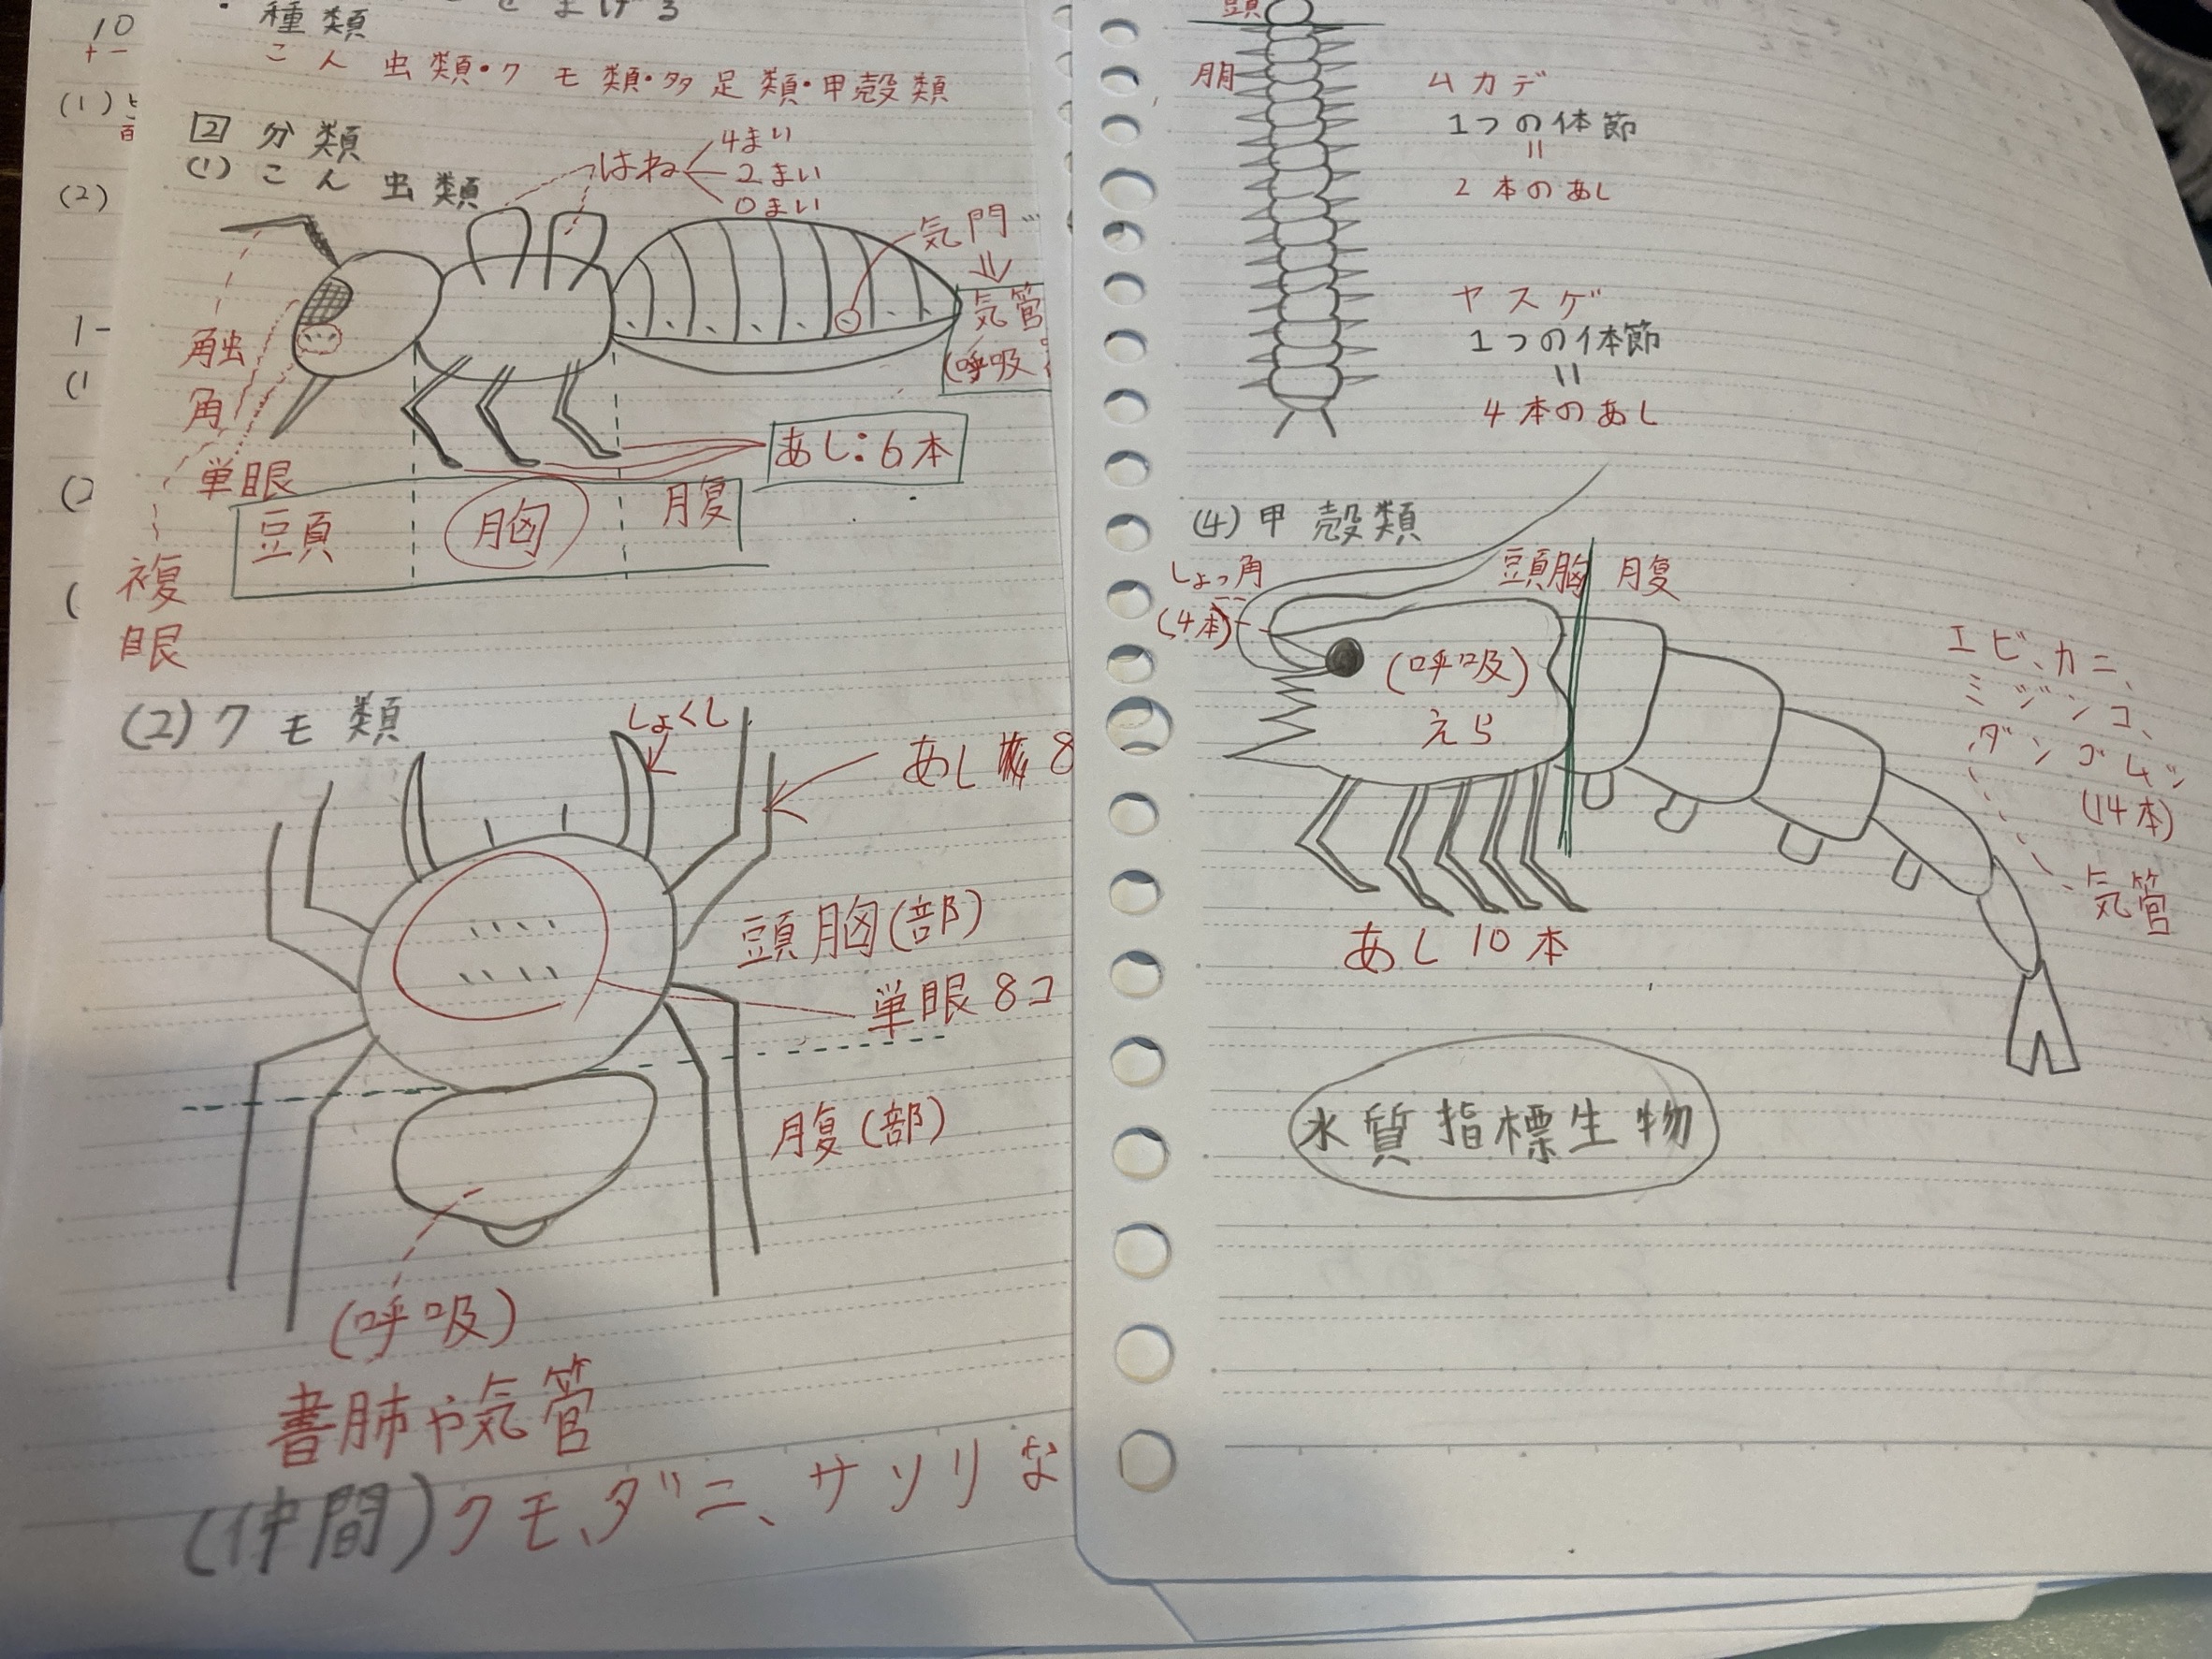 種類
こん虫類・クモ類・多足類・甲殻類
② 分類
(1) こん虫類
はね
4まい
2まい
0まい
気門
気管
(呼吸
触
角
単眼
複
眼
あし:6本
頭 胸 腹
(2) クモ類
しょくし
あし 8
頭胸(部)
単眼8コ
腹(部)
(呼吸)
書肺や気管
(仲間)クモ、ダニ、サソリな
10
+ -
(1)
(2)
1-
(1
(2
(
頭
胴
ムカデ
1つの体節
=
2本のあし
ヤスゲ
1つの体節
=
4本のあし
(4) 甲殻類
しょっ角
(4本)
頭胸 腹
(呼吸)
えら
エビ、カニ、
ミジンコ、
ダンゴムシ
(14本)
気管
あし10本
水質指標生物